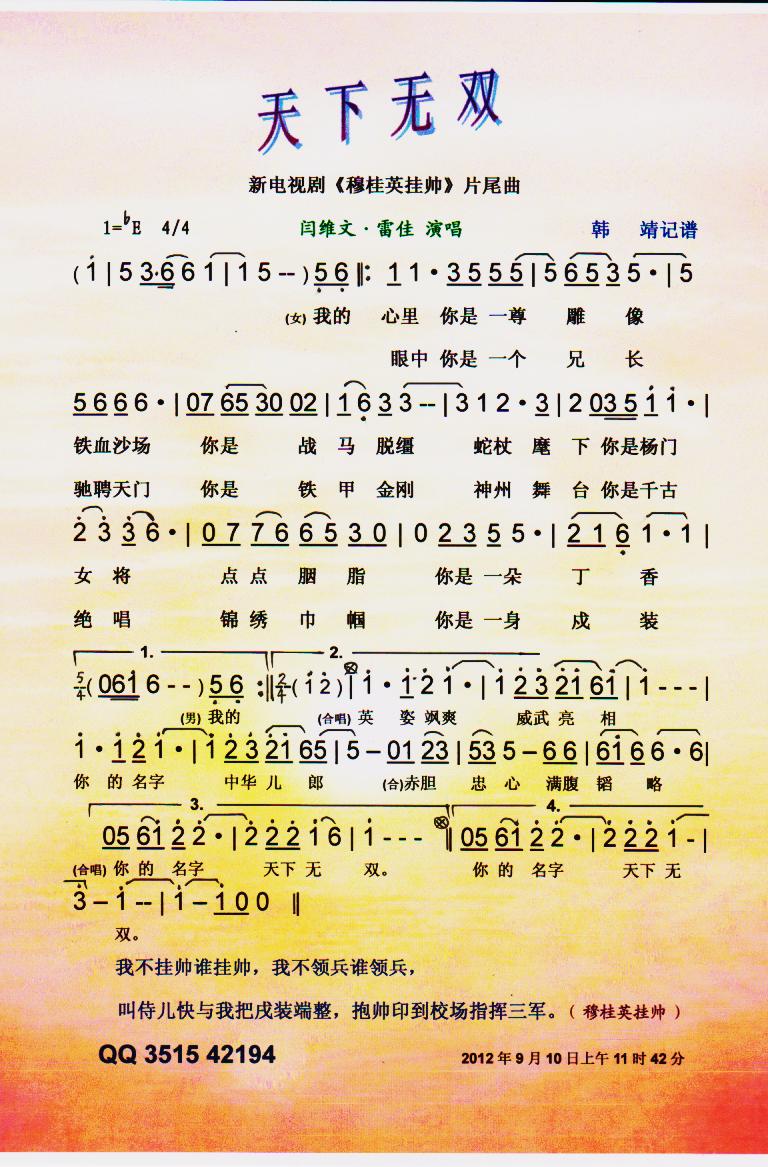 天下无双
新电视剧《穆桂英挂帅》片尾曲
1=♭E 4/4 闫维文·雷佳 演唱 韩 靖记谱
( 1 | 5 3·6 6 1 | 1 5 -- ) 5 6 ‖: 1 1· 3 5 5 5 | 5 6 5 3 5· | 5
(女) 我的 心里 你是 一尊 雕 像
眼中 你是 一个 兄 长
5 6 6 6· | 07 65 30 02 | 1 6 3 3 -- | 3 1 2· 3 | 2 03 5 1 1· |
铁血沙场 你是 战 马 脱缰 蛇杖 麾 下 你是杨门
驰聘天门 你是 铁 甲 金刚 神州 舞 台 你是千古
2 3 3 6· | 0 7 7 6 6 5 3 0 | 0 2 3 5 5· | 2 1 6 1· 1 |
女 将 点 点 胭 脂 你是 一朵 丁 香
绝 唱 锦 绣 巾 帼 你是 一身 戍 装
1. 2.
5/4 ( 061 6 - - ) 5 6 :‖ 2/4 ( 1 2 ) | 1· 1 2 1· | 1 2 3 2 1 6 1 | 1 - - - |
(男) 我的 (合唱) 英 姿 飒爽 威武 亮 相
1· 1 2 1· | 1 2 3 2 1 65 | 5 – 01 23 | 53 5 – 6 6 | 61 6 6· 6 |
你 的 名字 中华 儿 郎 (合)赤胆 忠 心 满腹 韬 略
3. 4.
05 61 2 2· | 2 2 2 1 6 | 1 - - - ‖ 05 61 2 2· | 2 2 2 1 - |
(合唱) 你 的 名字 天下 无 双。 你 的 名字 天下 无
3 – 1 -- | 1 – 1 0 0 ‖
双。
我不挂帅谁挂帅，我不领兵谁领兵，
叫侍儿快与我把戌装端整，抱帅印到校场指挥三军。（穆桂英挂帅）
QQ 3515 42194 2012 年 9 月 10 日上午 11 时 42 分